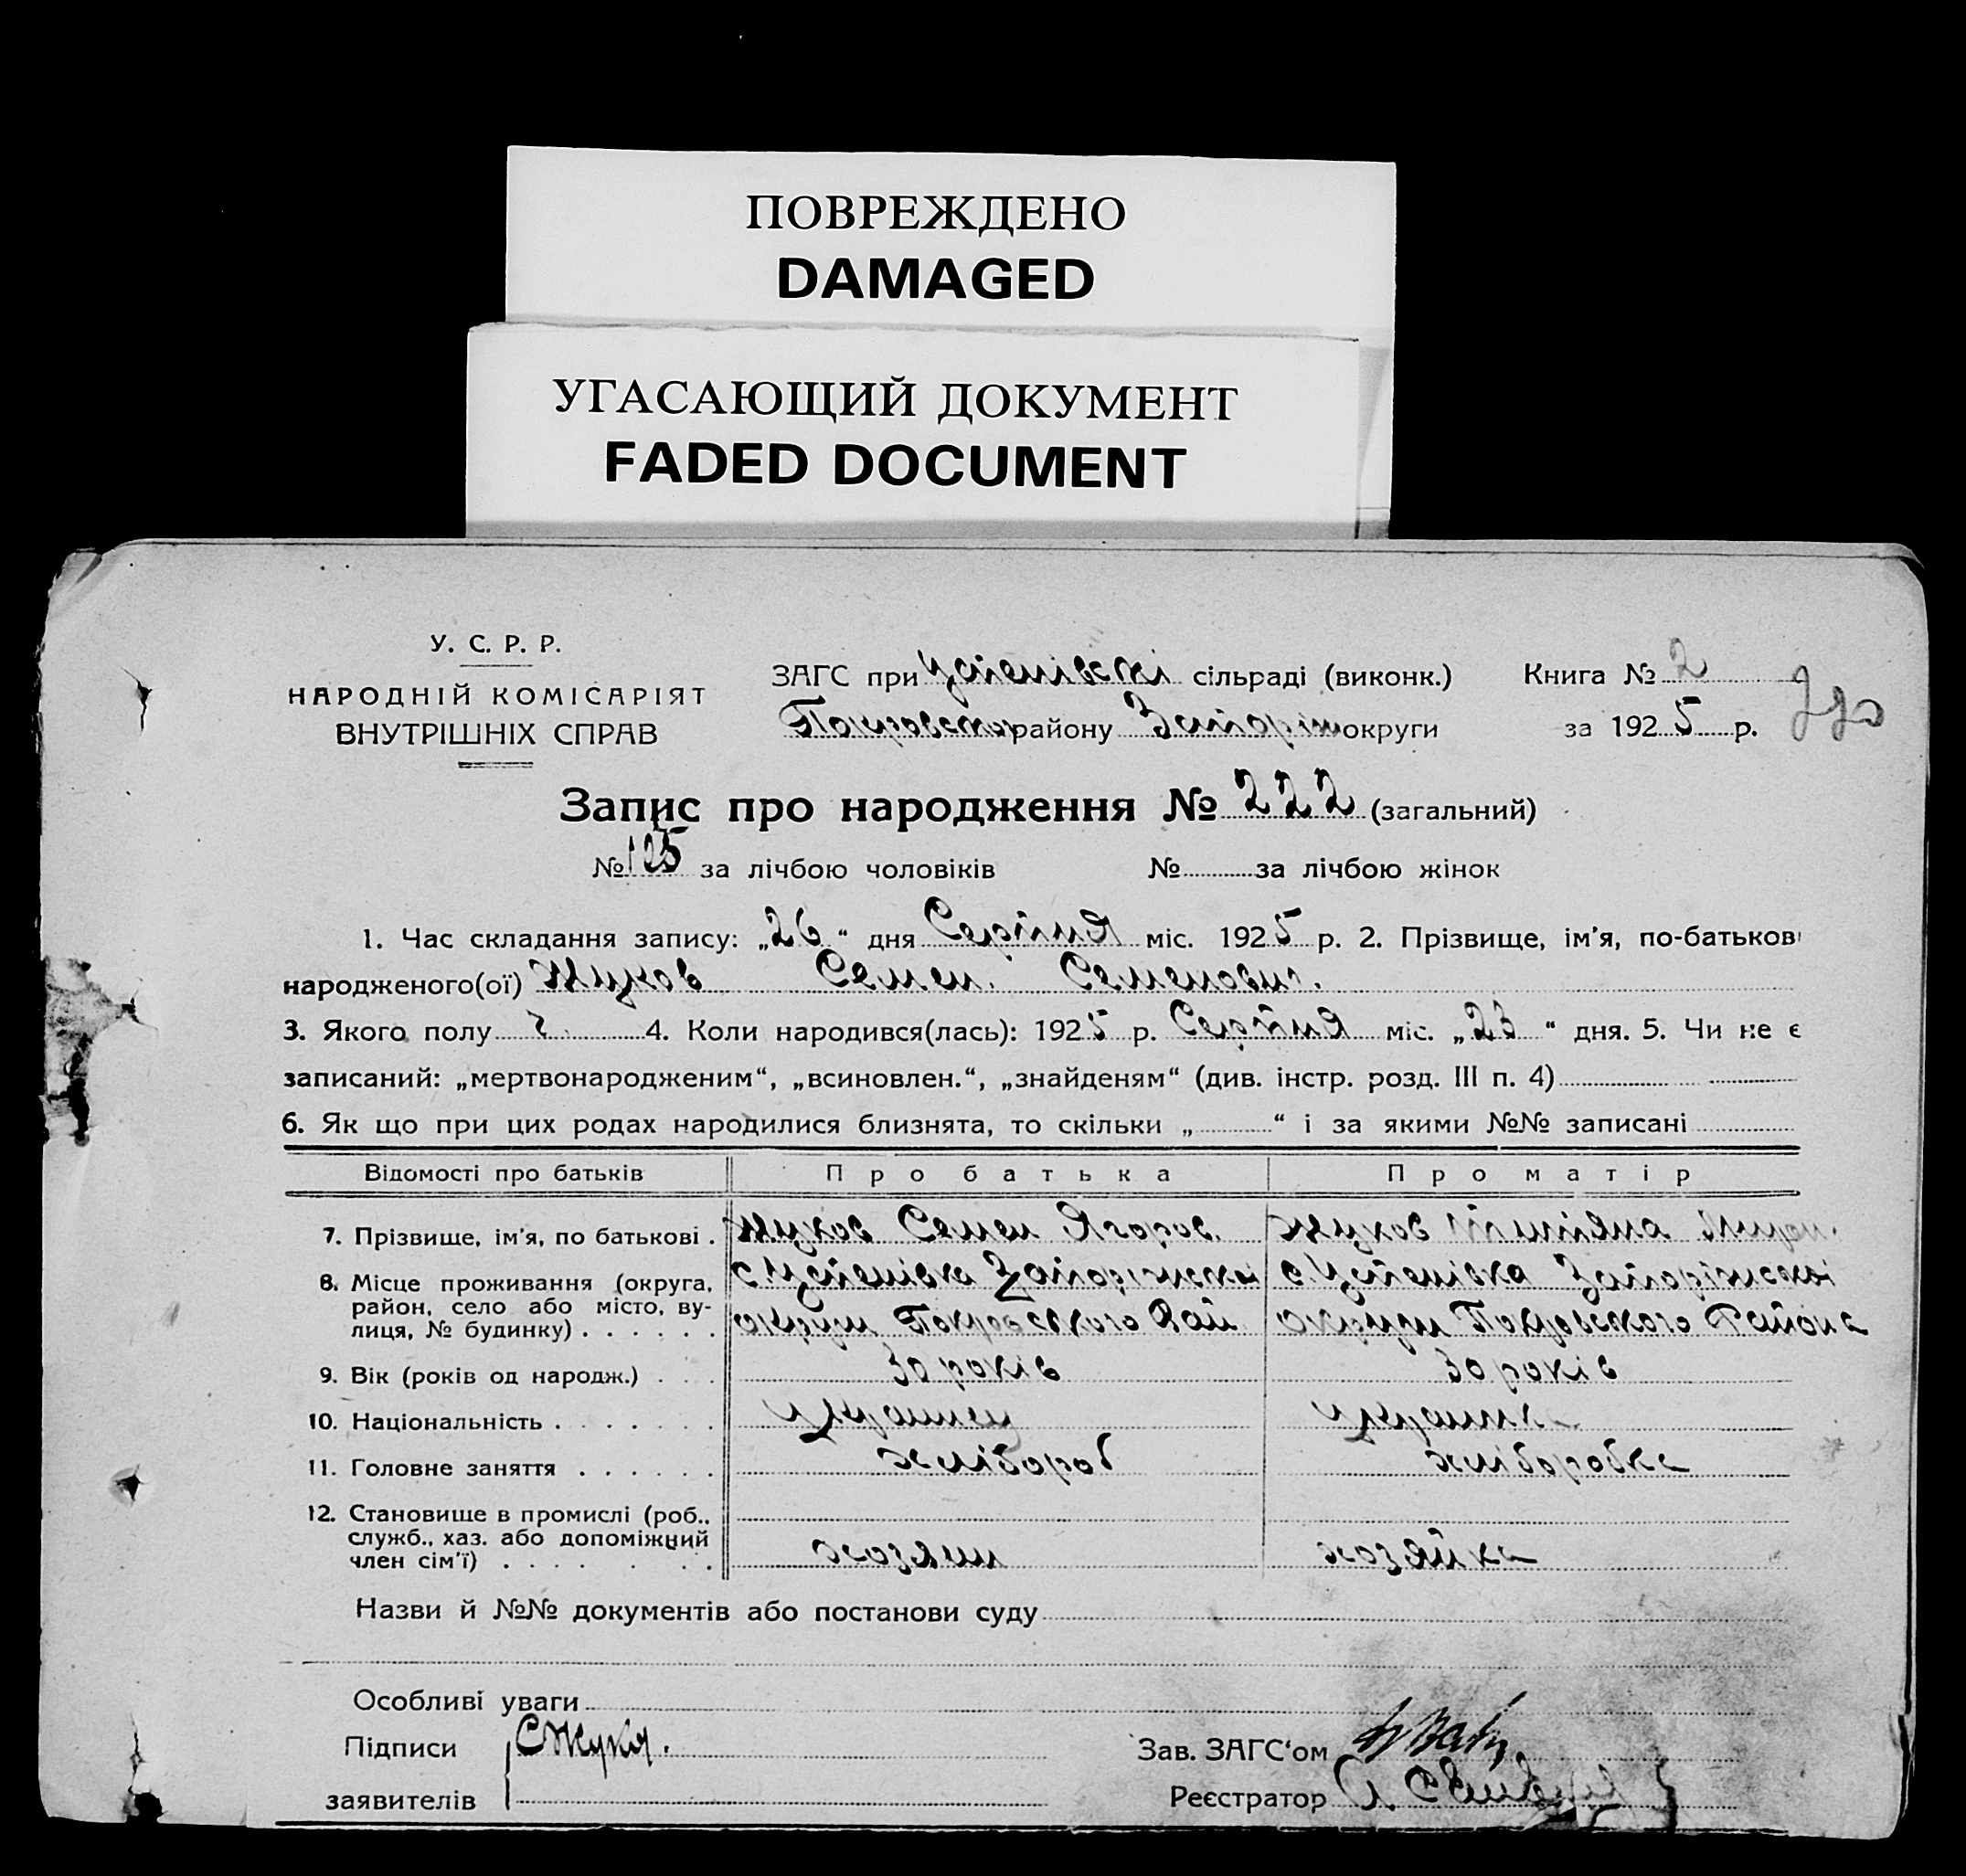 ПОВРЕЖДЕНО
DAMAGED
УГАСАЮЩИЙ ДОКУМЕНТ
FADED DOCUMENT
У. С. Р. Р.
НАРОДНІЙ КОМІСАРІЯТ
ВНУТРІШНІХ СПРАВ
ЗАГС при Успенівскі сільраді (виконк.)
Покровсько району Запоріж округи
Книга № 2
за 1925 р.
Запис про народження № 222 (загальний)
№ 125 за лічбою чоловіків № за лічбою жінок
1. Час складання запису: „26“ дня Серпня міс. 1925 р. 2. Прізвище, ім'я, по-батькові
народженого(ої) Жуков Семен Семенович.
3. Якого полу ч. 4. Коли народився(лась): 1925 р. Серпня міс. „23“ дня. 5. Чи не є
записаний: „мертвонародженим“, „всиновлен.“, „знайденям“ (див. інстр. розд. III п. 4)
6. Як що при цих родах народилися близнята, то скільки „ “ і за якими №№ записані
Відомості про батьків Про батька Про матір
7. Прізвище, ім'я, по батькові . Жуков Семен Ягоров. Жукова Титяна
8. Місце проживання (округа, с. Успенівка Запоріжскоі с. Успенівка Запоріжскоі
район, село або місто, ву-
лиця, № будинку) . . . . . . округи Покровського Рай округи Покровского Района
9. Вік (років од народж.) . . . 30 років 30 років
10. Національність . . . . . . . Украинец украинка
11. Головне заняття . . . . . . хлібороб хліборобка
12. Становище в промислі (роб.,
служб., хаз. або допоміжний
член сім'ї) . . . . . . . хозяин хозяйка
Назви й №№ документів або постанови суду
Особливі уваги
Підписи С Жуков.
заявителів
Зав. ЗАГС'ом
Реєстратор